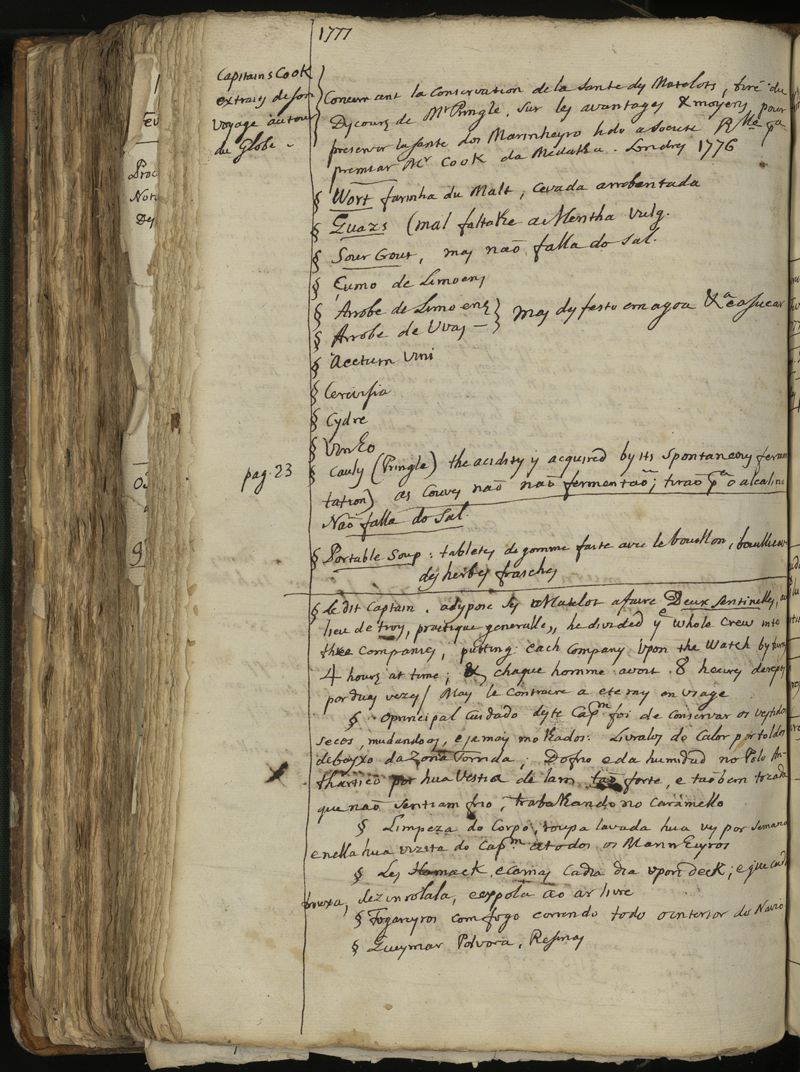 1777
Capitains Cook
extrais de son
voyage autour
du Globe -
Concernant la Conservation de la Sante dy Matelots, tiré du
Dycours de Mr Pringle, sur ly avantages & moyens, pour
preserver la sante dos Marinheyro hdo a Societe Rlle pa
premiar Mr Cook da Medalha. Londres 1776
§ Wort farinha du Malt, Cevada arrebentada
§ Guazs (mal faltalhe a Mentha vulg.
§ Sour Gout, may naõ falla do sal.
§ Cumo de Limoens
§ Arrobe de Limoens } may dyfesto em agoa & a ca sucar
§ Arrobe de Uvas -
§ Acetum Vini
§ Cerevisia
§ Cydre
§ Vinho
pag. 23
§ Cauly (Pringle) the acidity y acquired by its Spontaneous fermen
tation) as Couves naõ naõ fermentaõ; tiraõ pa o alcalino
Naõ falla do Sal.
§ Portable Soup: tabletes de gomme faite avec le bouillon, bouillies
des herbes fraiches
§ Le dit Captain. adypose Sy Matelot a faire Deux Sentinelles, au
lieu de troy, practique generalle,, he divided ye whole Crew into
three Companies, putting each Company upon the Watch by turns
4 hours at time; & chaque homme avoit 8 heures de repos
por duas vezes / May le Contraire a ete ray en usage
§ O principal Cuidado dyte Capm foi de Conservar os vestidos
secos, mudandoos, e jamay molhados: Livralos do Calor por toldos
debayxo da Zona Torrida; Do frio e da humidad no Polo An-
thartico por hua Vestia de lam taõ forte, e taõ bem trazada
que naõ sentiam frio, trabalhando no Caramello
§ Limpeza do Corpo, roupa lavada hua vez por Semana
e nella hua vizita do Capm a todos os Marinheyros
§ Ley Hamack, e camas Cadia dia upon deck; e que cada
trouxa, dezinrolala, e expola ao ar livre
§ Fogareyros com fogo correndo todo o interior do Navio
§ Queymar Polvora, Resinas